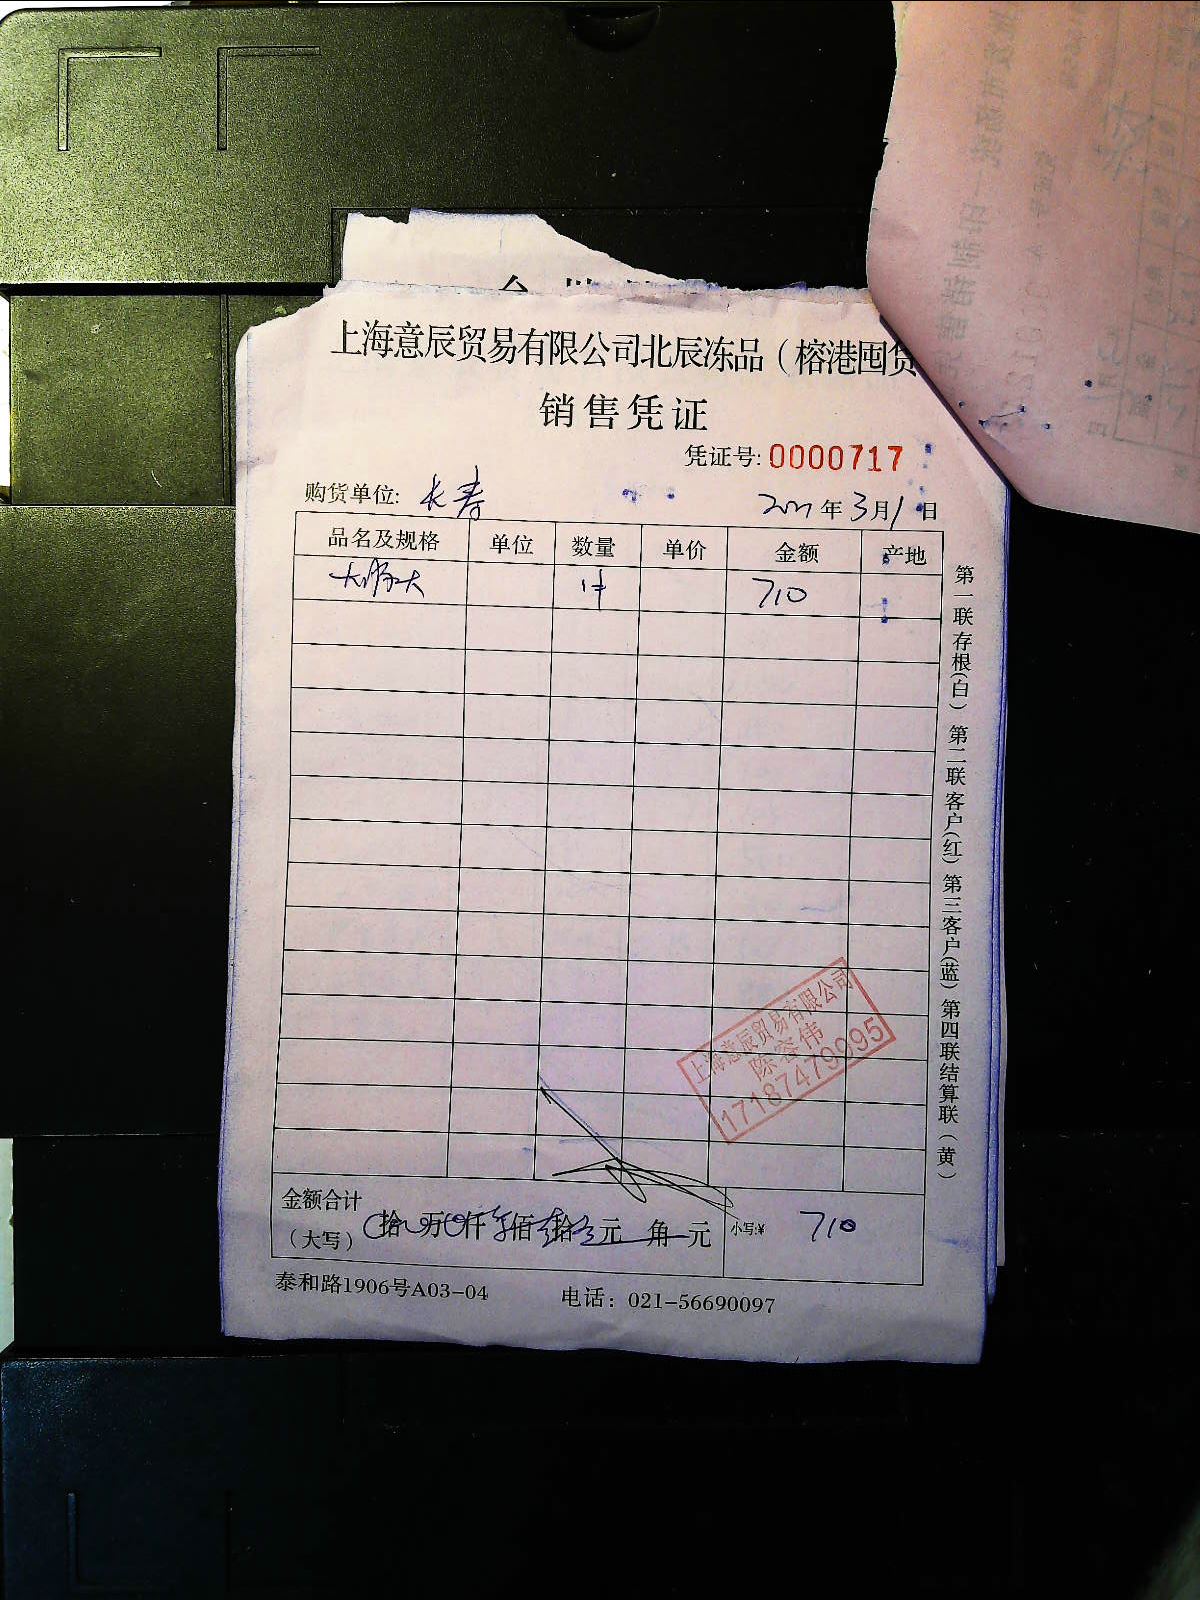 上海意辰贸易有限公司北辰冻品（榕港囤货
销售凭证
凭证号: 0000717
购货单位: 长寿 年3月1日
品名及规格 单位 数量 单价 金额 产地
1件 710
第一联存根(白) 第二联客户(红) 第三客户(蓝) 第四联结算联(黄)
上海意辰贸易有限公司
陈容伟
17187479095
金额合计
（大写） 拾 万 仟 佰 拾 元 角 元 小写:¥ 710
泰和路1906号A03-04 电话：021-56690097